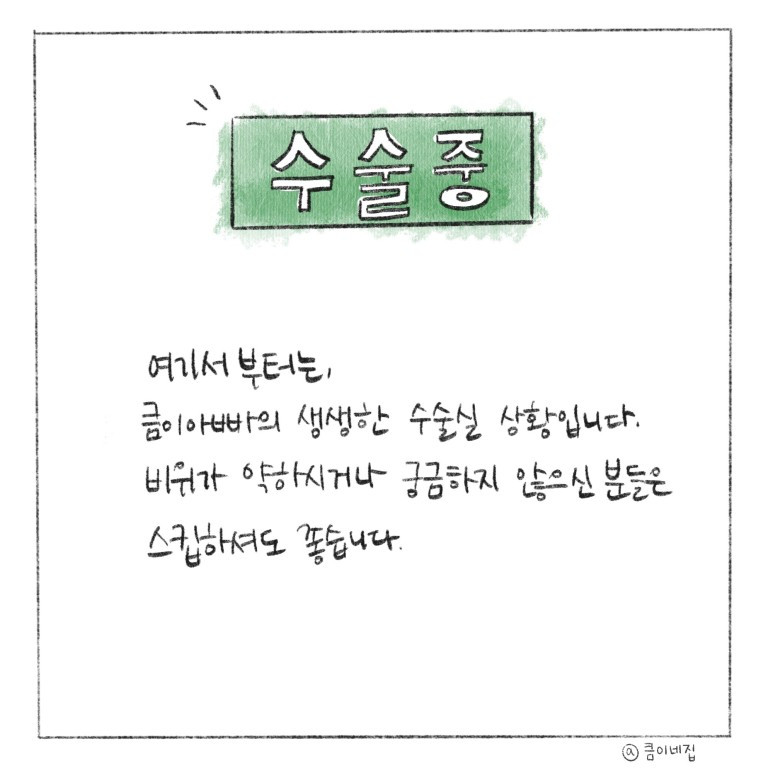 수술중
여기서 부터는,
큼이아빠의 생생한 수술실 상황입니다.
비위가 약하시거나 궁금하지 않으신 분들은
스킵하셔도 좋습니다.
@큼이네집